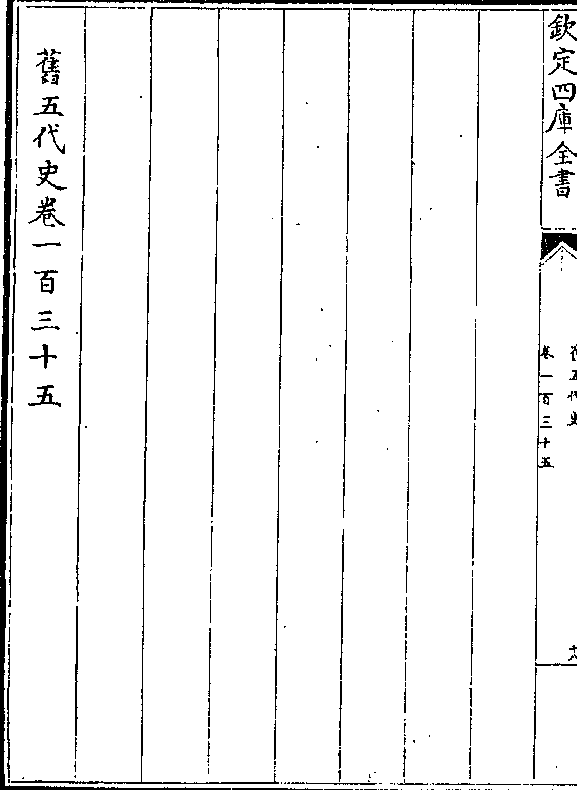 欽定四庫全書
舊五代史
卷一百三十五
舊五代史卷一百三十五